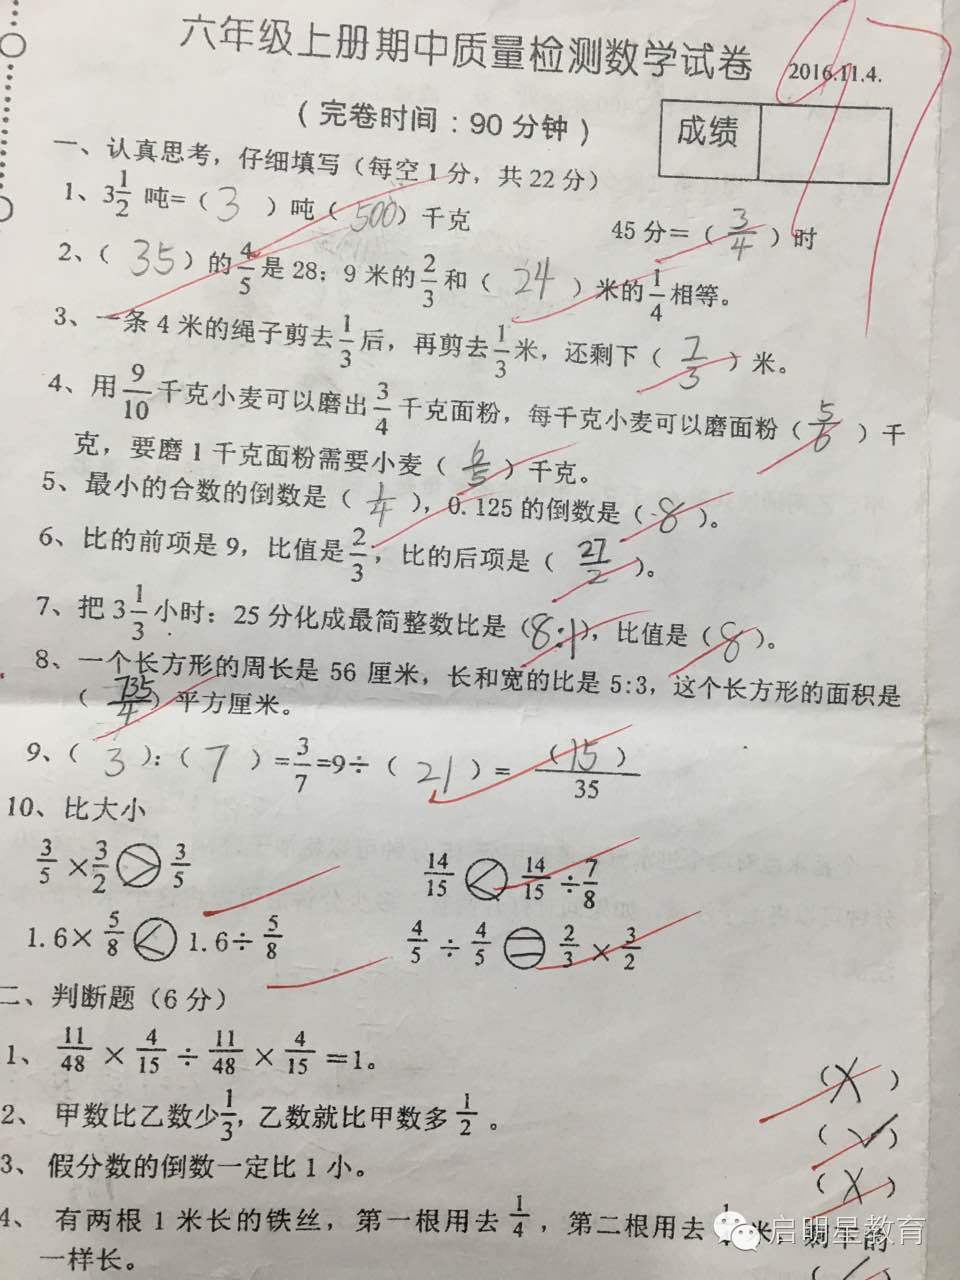 六年级上册期中质量检测数学试卷 2016.11.4.
97
(完卷时间:90分钟)
成绩
一、认真思考,仔细填写(每空1分,共22分)
1、3 1/2 吨=(3)吨(500)千克 45分=(3/4)时
2、(35)的4/5是28;9米的2/3和(24)米的1/4相等。
3、一条4米的绳子剪去1/3后,再剪去1/3米,还剩下(7/3)米。
4、用9/10千克小麦可以磨出3/4千克面粉,每千克小麦可以磨面粉(5/6)千
克,要磨1千克面粉需要小麦(6/5)千克。
5、最小的合数的倒数是(1/4),0.125的倒数是(8)。
6、比的前项是9,比值是2/3,比的后项是(27/2)。
7、把3 1/3小时:25分化成最简整数比是(8:1),比值是(8)。
8、一个长方形的周长是56厘米,长和宽的比是5:3,这个长方形的面积是
(735/4)平方厘米。
9、(3):(7)=3/7=9÷(21)=(15)/35
10、比大小
3/5×3/2>3/5 14/15<14/15÷7/8
1.6×5/8<1.6÷5/8 4/5÷4/5=2/3×3/2
二、判断题(6分)
1、11/48×4/15÷11/48×4/15=1。 (×)
2、甲数比乙数少1/3,乙数就比甲数多1/2。 (✓)
3、假分数的倒数一定比1小。 (×)
4、有两根1米长的铁丝,第一根用去1/4,第二根用去1/4米,剩下的
一样长。
启明星教育